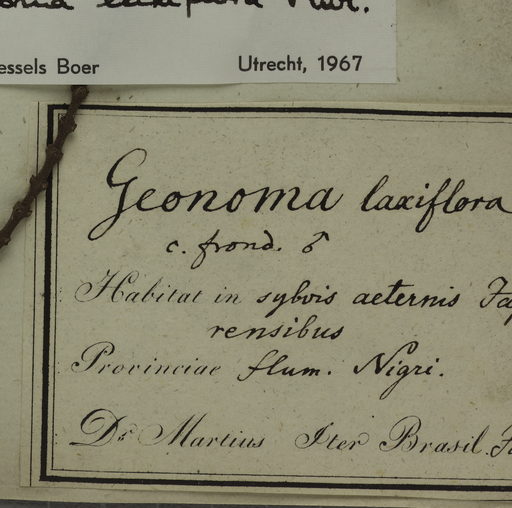 laxiflora Mart.
essels Boer Utrecht, 1967
Geonoma laxiflora
c. frond. ♂
Habitat in sylvis aeternis Jap
rensibus
Provinciae flum. Nigri.
Dr. Martius Iter Brasil.